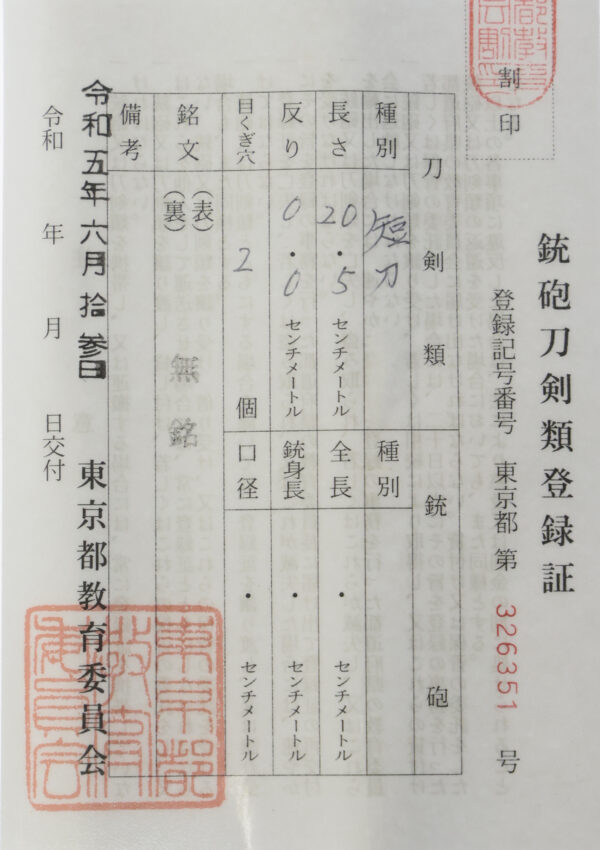 割印
銃砲刀剣類登録証
登録記号番号 東京都 第 326351 号
刀剣類
銃砲
種別 短刀
種別
長さ 20・5 センチメートル
全長 ・ センチメートル
反り 0・0 センチメートル
銃身長 ・ センチメートル
目くぎ穴 2 個
口径 ・ センチメートル
銘文 (表) 無銘
(裏)
備考
令和五年六月拾参日
令和 年 月 日交付
東京都教育委員会
東京都教育委員会